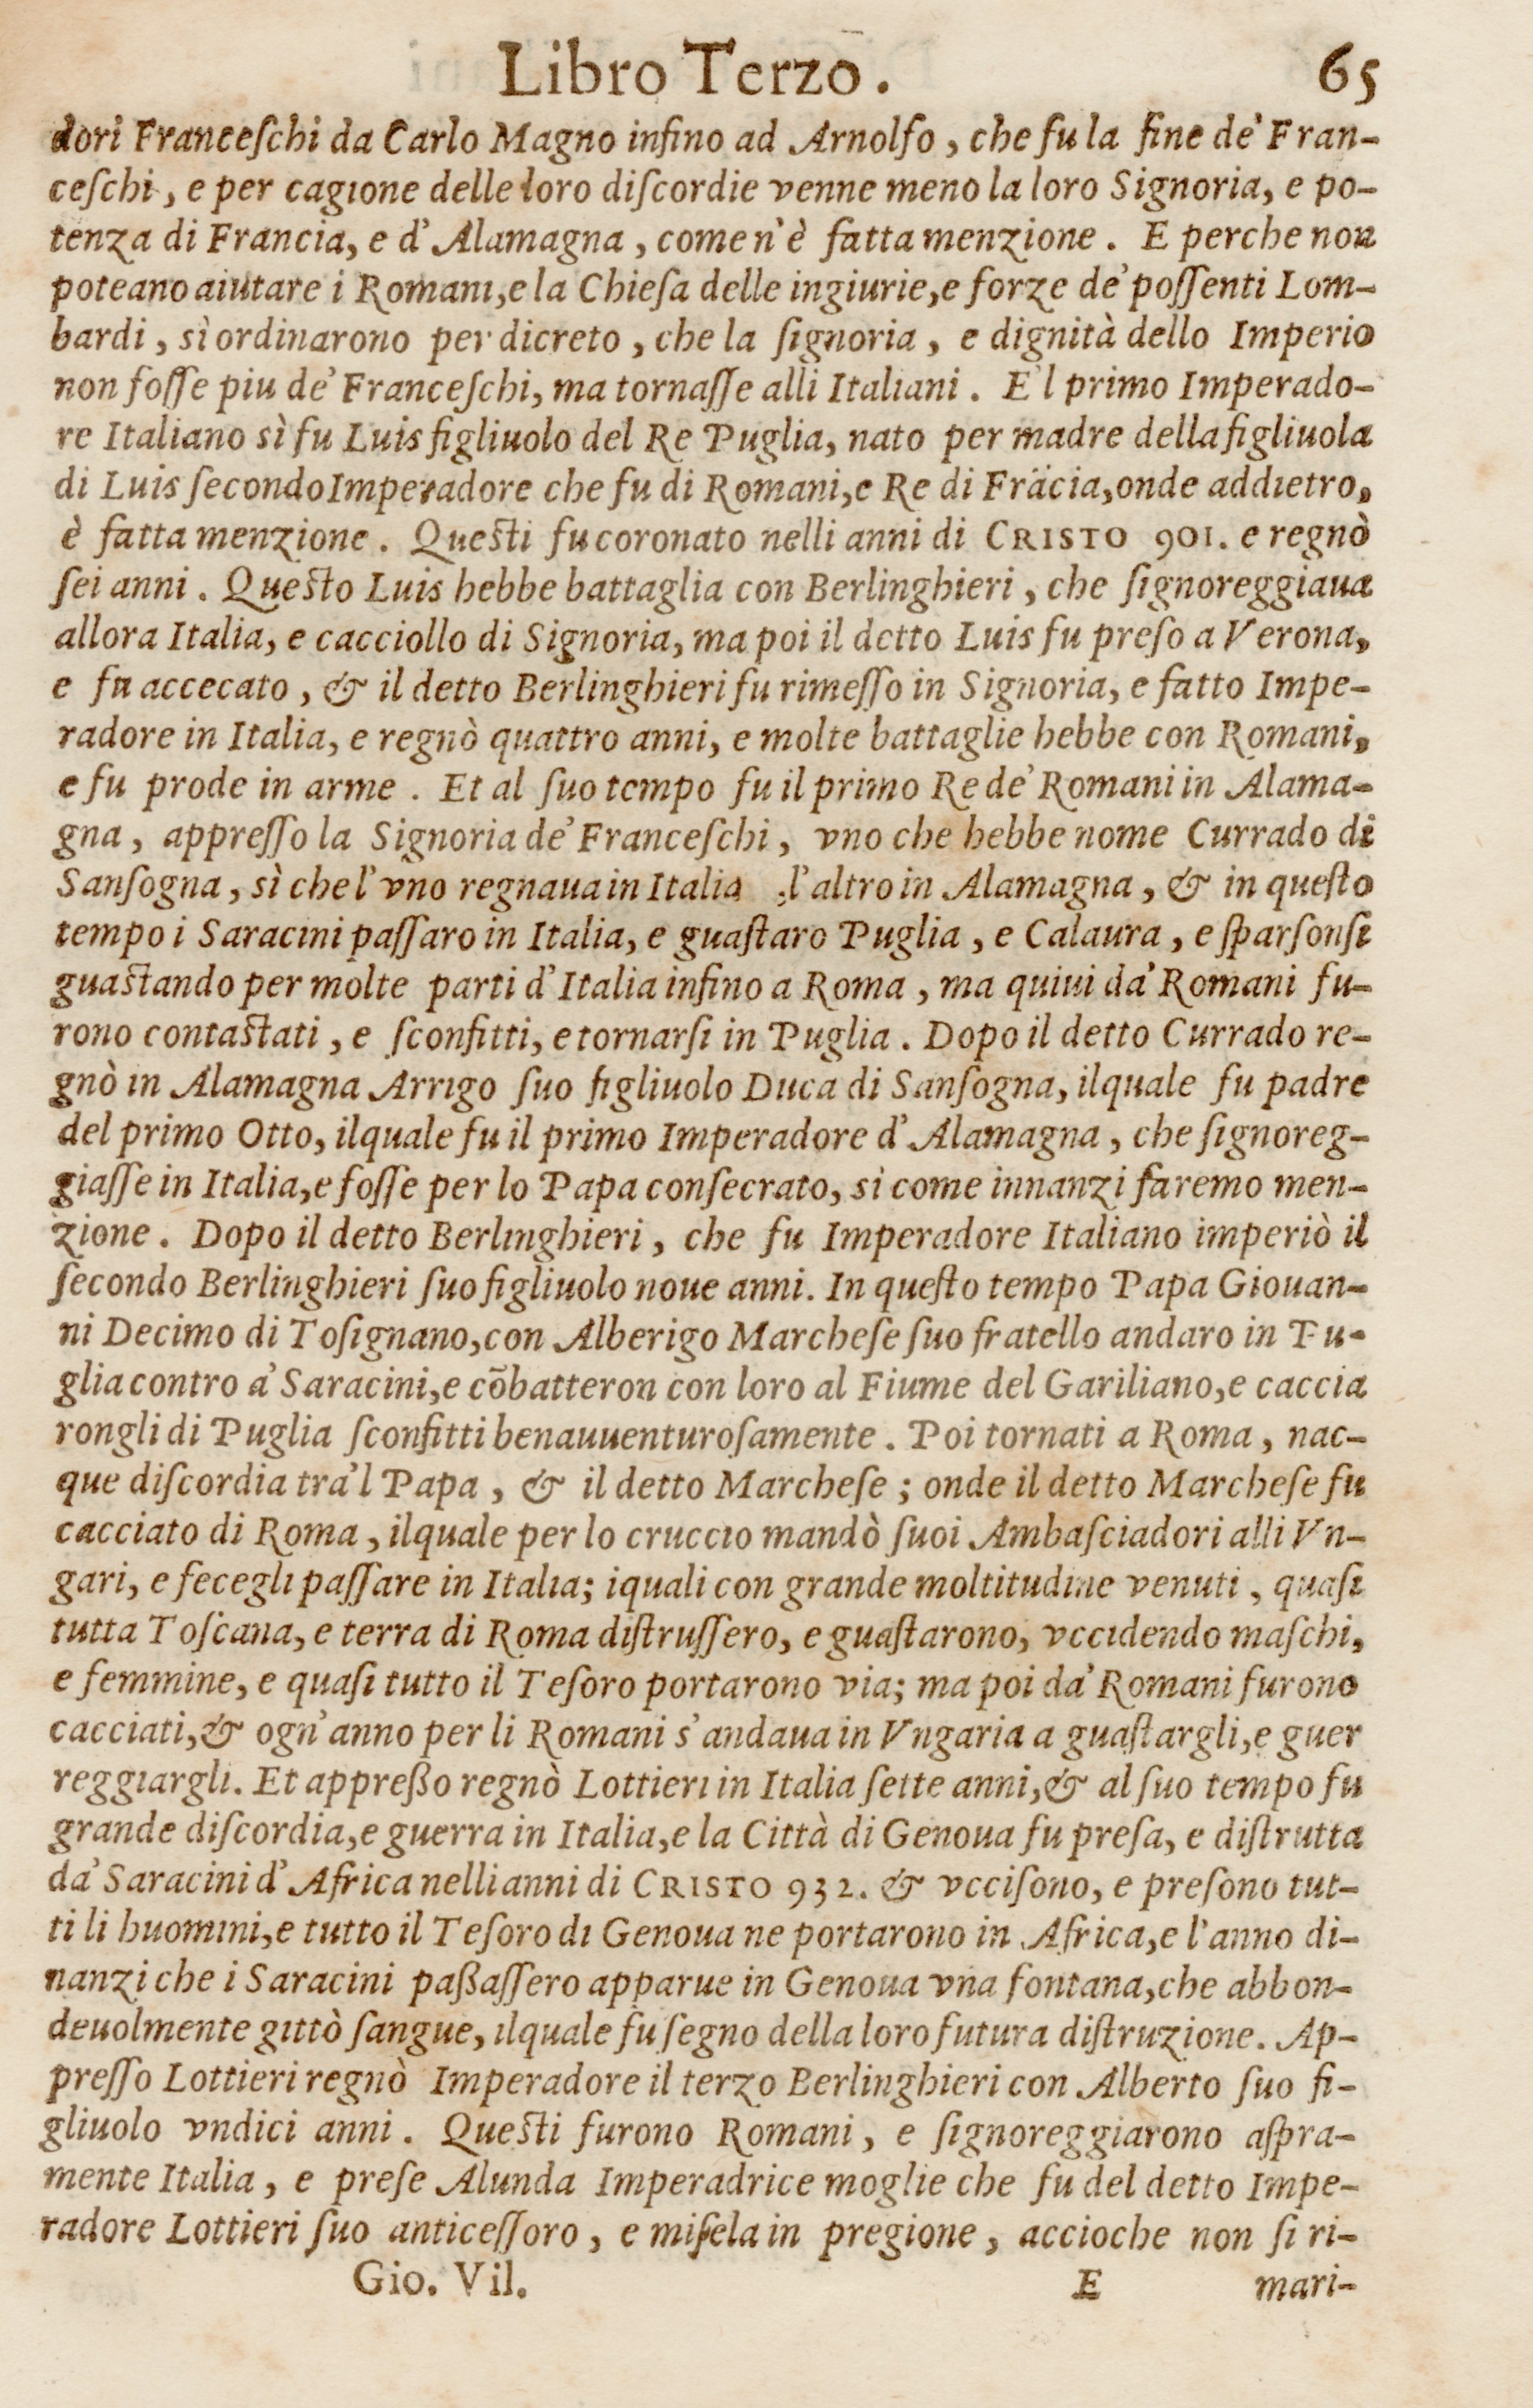 Libro Terzo. 65
dori Franceſchi da Carlo Magno infino ad Arnolfo, che fu la fine de' Fran-
ceſchi, e per cagione delle loro diſcordie venne meno la loro Signoria, e po-
tenza di Francia, e d'Alamagna, come n'è fatta menzione. E perche non
poteano aiutare i Romani, e la Chieſa delle ingiurie, e forze de' poſſenti Lom-
bardi, sì ordinarono per dicreto, che la ſignoria, e dignità dello Imperio
non foſſe piu de' Franceſchi, ma tornaſſe alli Italiani. E'l primo Imperado-
re Italiano sì fu Luis figliuolo del Re Puglia, nato per madre della figliuola
di Luis ſecondo Imperadore che fu di Romani, e Re di Frãcia, onde addietro,
è fatta menzione. Queſti fu coronato nelli anni di CRISTO 901. e regnò
ſei anni. Queſto Luis hebbe battaglia con Berlinghieri, che ſignoreggiaua
allora Italia, e cacciollo di Signoria, ma poi il detto Luis fu preſo a Verona,
e fu accecato, & il detto Berlinghieri fu rimeſſo in Signoria, e fatto Impe-
radore in Italia, e regnò quattro anni, e molte battaglie hebbe con Romani,
e fu prode in arme. Et al ſuo tempo fu il primo Re de' Romani in Alama-
gna, appreſſo la Signoria de' Franceſchi, vno che hebbe nome Currado di
Sanſogna, sì che l'vno regnaua in Italia, l'altro in Alamagna, & in queſto
tempo i Saracini paſſaro in Italia, e guaſtaro Puglia, e Calaura, e ſparſonſi
guaſtando per molte parti d'Italia infino a Roma, ma quiui da' Romani fu-
rono contaſtati, e ſconfitti, e tornarſi in Puglia. Dopo il detto Currado re-
gnò in Alamagna Arrigo ſuo figliuolo Duca di Sanſogna, ilquale fu padre
del primo Otto, ilquale fu il primo Imperadore d'Alamagna, che ſignoreg-
giaſſe in Italia, e foſſe per lo Papa conſecrato, sì come innanzi faremo men-
zione. Dopo il detto Berlinghieri, che fu Imperadore Italiano imperiò il
ſecondo Berlinghieri ſuo figliuolo noue anni. In queſto tempo Papa Giouan-
ni Decimo di Toſignano, con Alberigo Marcheſe ſuo fratello andaro in Pu-
glia contro a' Saracini, e cõbatteron con loro al Fiume del Gariliano, e caccia
rongli di Puglia ſconfitti benauuenturoſamente. Poi tornati a Roma, nac-
que diſcordia tra'l Papa, & il detto Marcheſe; onde il detto Marcheſe fu
cacciato di Roma, ilquale per lo cruccio mandò ſuoi Ambaſciadori alli Vn-
gari, e fecegli paſſare in Italia; iquali con grande moltitudine venuti, quaſi
tutta Toſcana, e terra di Roma diſtruſſero, e guaſtarono, vccidendo maſchi,
e femmine, e quaſi tutto il Teſoro portarono via; ma poi da' Romani furono
cacciati, & ogn'anno per li Romani s'andaua in Vngaria a guaſtargli, e guer
reggiargli. Et appreßo regnò Lottieri in Italia ſette anni, & al ſuo tempo fu
grande diſcordia, e guerra in Italia, e la Città di Genoua fu preſa, e diſtrutta
da' Saracini d'Africa nelli anni di CRISTO 932. & vcciſono, e preſono tut-
ti li huomini, e tutto il Teſoro di Genoua ne portarono in Africa, e l'anno di-
nanzi che i Saracini paßaſſero apparue in Genoua vna fontana, che abbon-
deuolmente gittò ſangue, ilquale fu ſegno della loro futura diſtruzione. Ap-
preſſo Lottieri regnò Imperadore il terzo Berlinghieri con Alberto ſuo fi-
gliuolo vndici anni. Queſti furono Romani, e ſignoreggiarono aſpra-
mente Italia, e preſe Alunda Imperadrice moglie che fu del detto Impe-
radore Lottieri ſuo anticeſſoro, e miſela in pregione, accioche non ſi ri-
Gio. Vil. E mari-